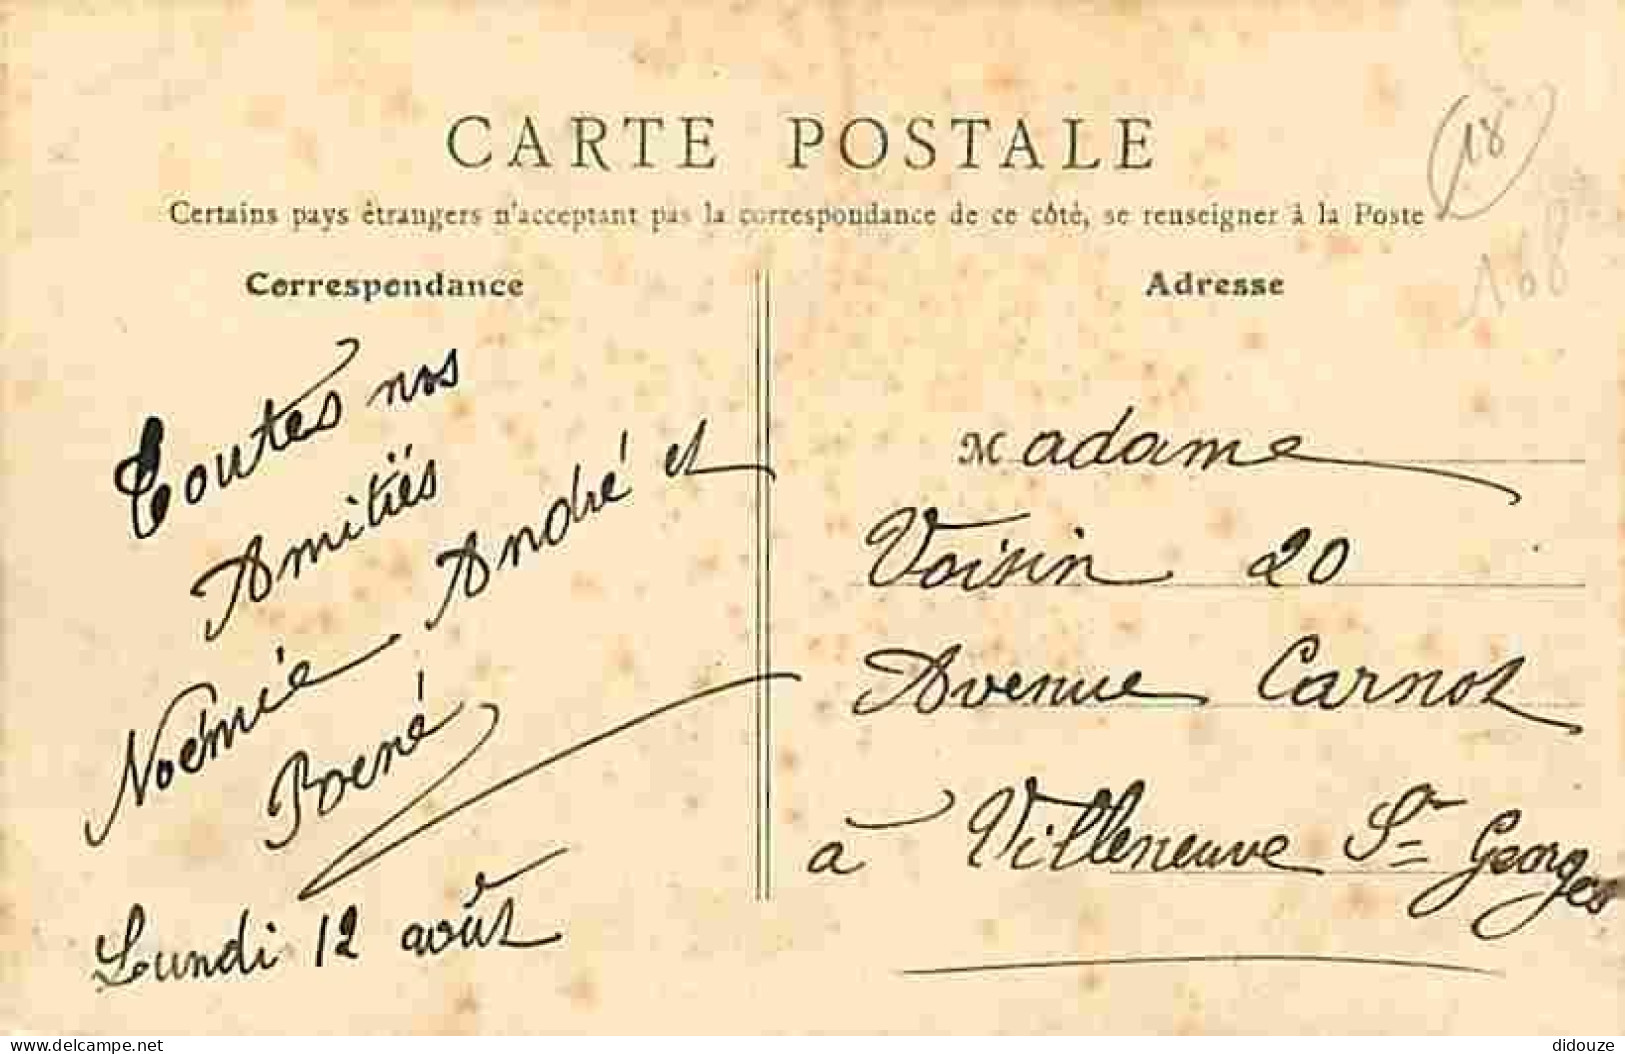 CARTE POSTALE
18
Certains pays étrangers n'acceptant pas la correspondance de ce côté, se renseigner à la Poste
Correspondance
Toutes nos
Amitiés
Noémie André et
René
Lundi 12 août
Adresse
168
Madame
Voisin 20
Avenue Carnot
à Villeneuve St Georges
delcampe.net
didouze